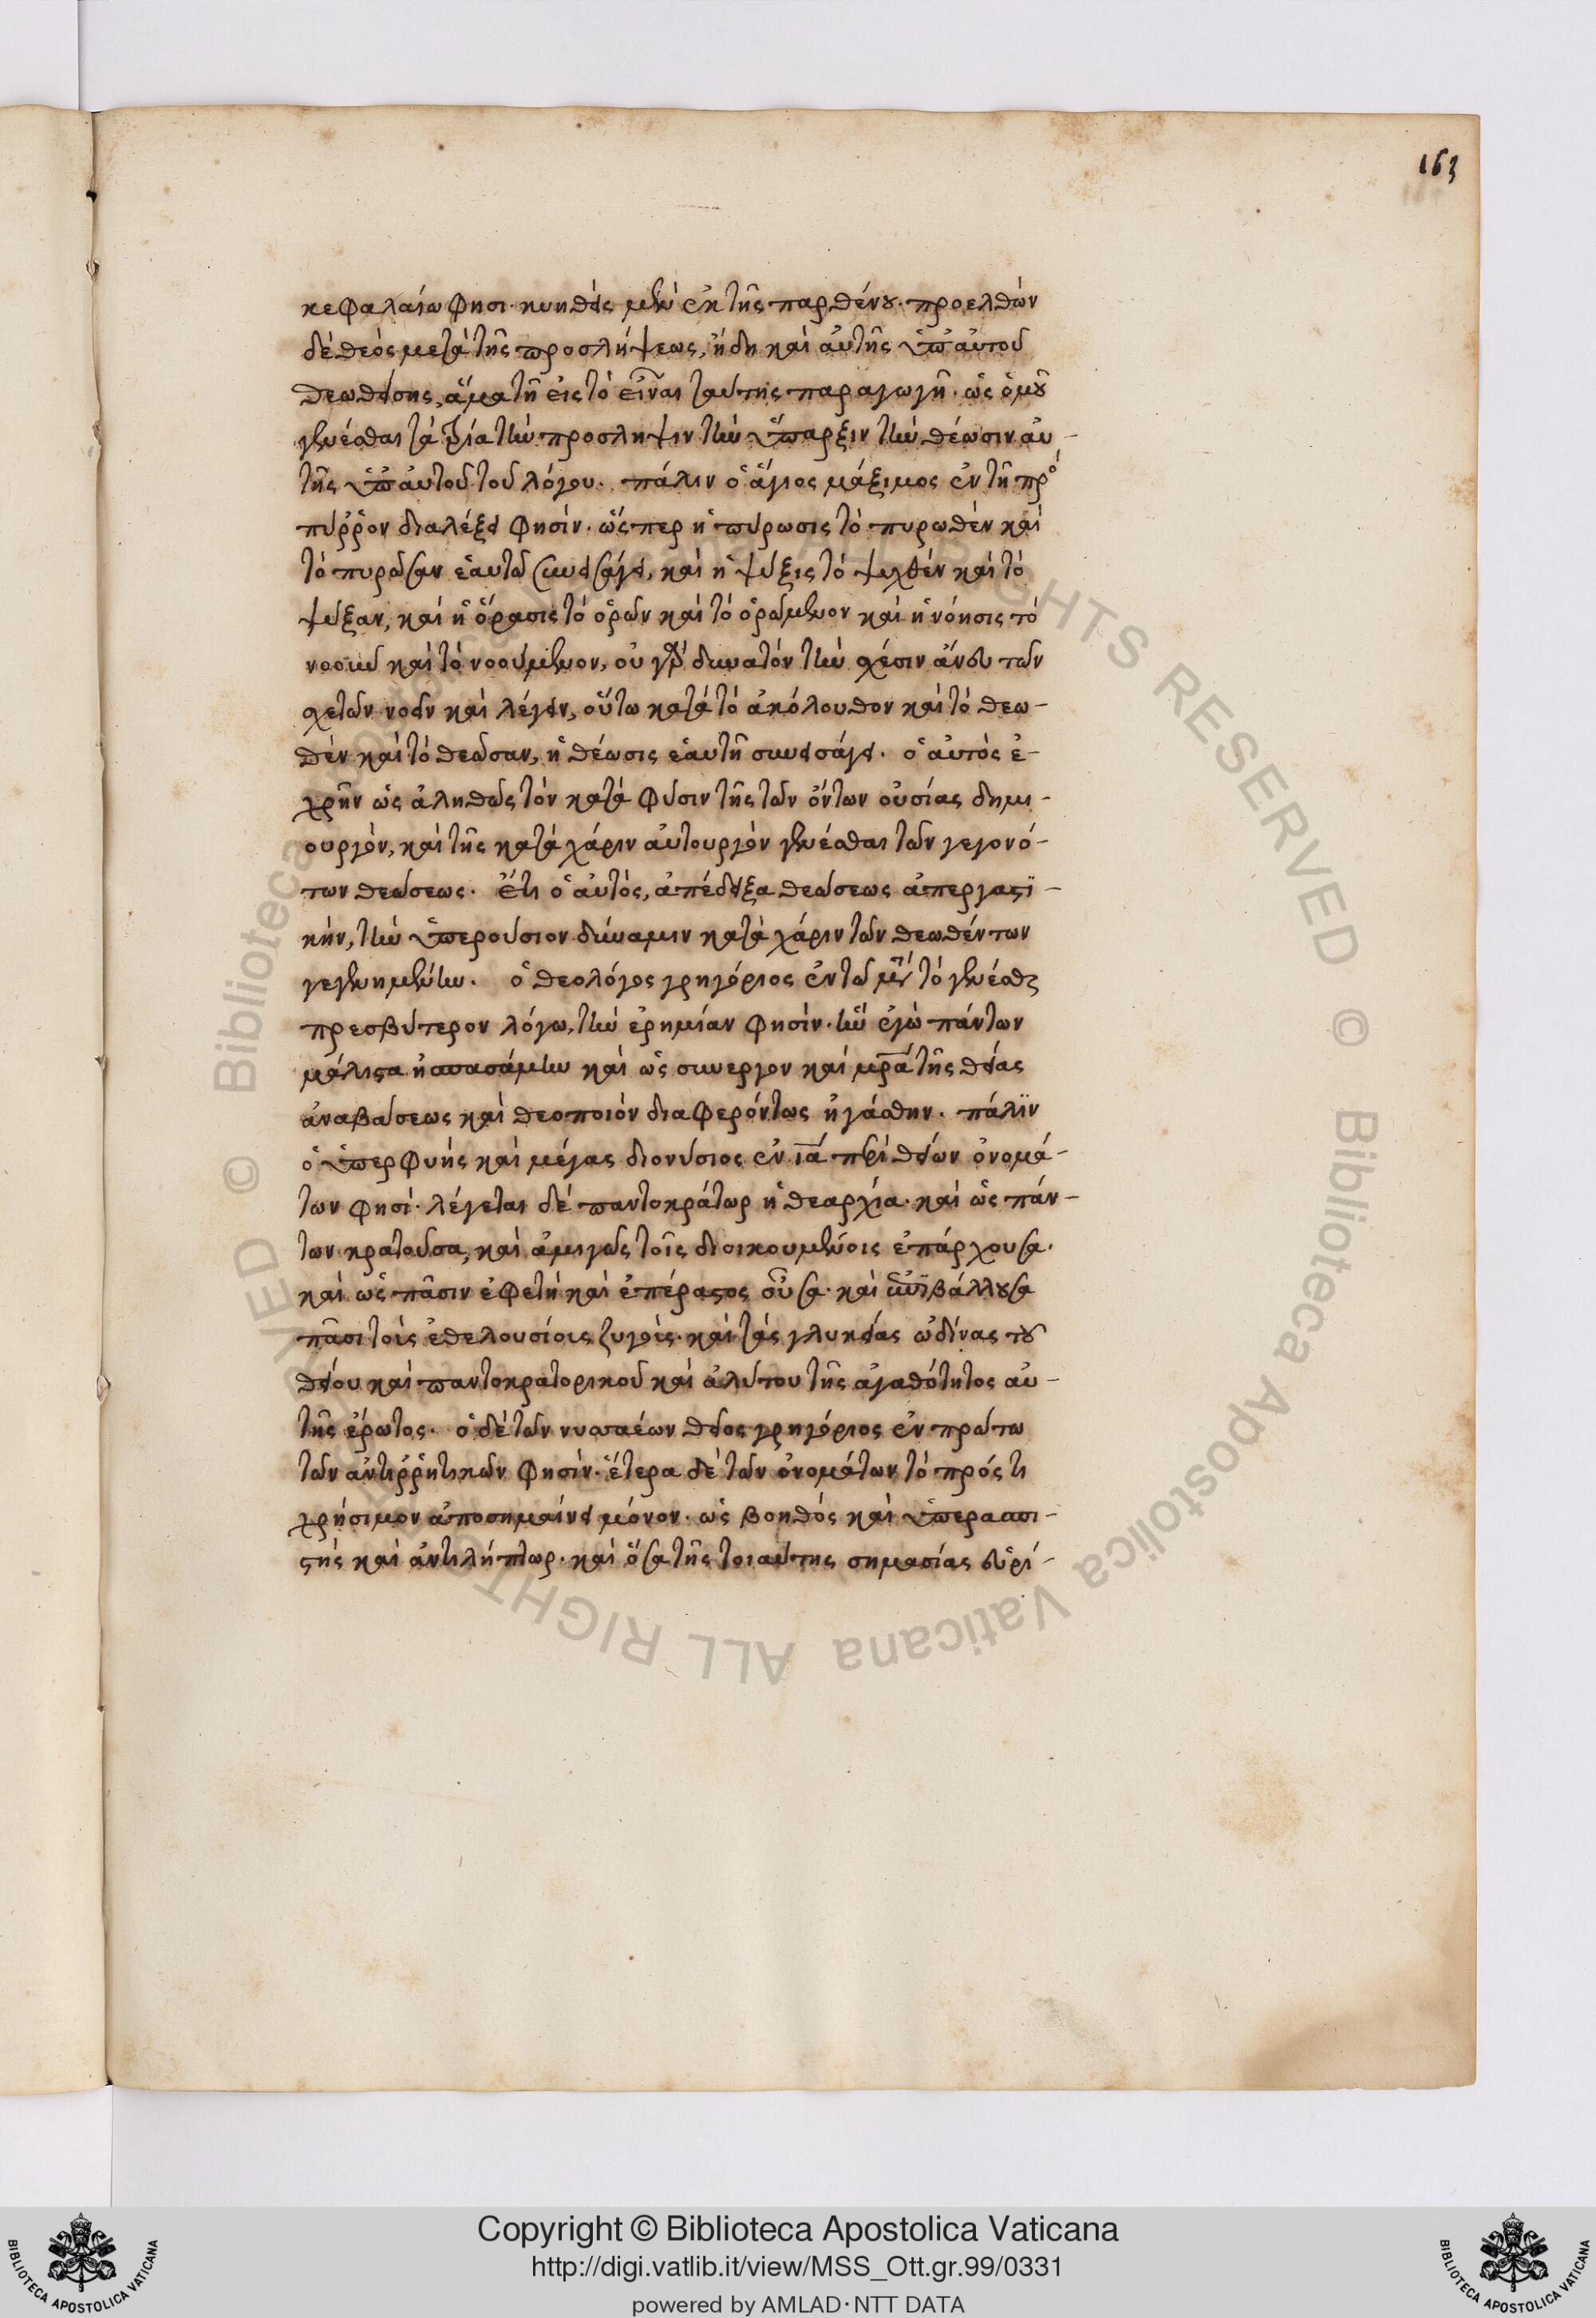 163
κεφαλαίω φησι· κυηθεὶς μὲν ἐκ τῆς παρθένου· προελθὼν
δὲ θεὸς μετὰ τῆς προσλήψεως, ἤδη καὶ αὐτῆς ὑπ' αὐτοῦ
θεωθείσης, ἅμα τῆ εἰς τὸ εἶναι ταύτης παραγωγῆ· ὡς ὁμοῦ
γενέσθαι τὰ τρία τὴν προσληψιν τὴν ὕπαρξιν τὴν θέωσιν αὐ-
τῆς ὑπ' αὐτοῦ τοῦ λόγου. πάλιν ὁ ἅγιος μάξιμος ἐν τῆ πρὸ
πύῤῥον διαλέξει φησὶν· ὥς περ ἡ πύρωσις τὸ πυρωθὲν καὶ
τὸ πυρῶσαν ἑαυτῶ συνεισάγει, καὶ ἡ ψύξις τὸ ψυχθὲν καὶ τὸ
ψύξαν, καὶ ἡ ὅρασις τὸ ὁρῶν καὶ τὸ ὁρώμενον καὶ ἡ νόησις τὸ
νοοῦν καὶ τὸ νοούμενον, οὐ γὰρ δυνατὸν τὴν σχέσιν ἄνευ τῶν
σχετῶν νοεῖν καὶ λέγειν, οὕτω κατὰ τὸ ἀκόλουθον καὶ τὸ θεω-
θὲν καὶ τὸ θεῶσαν, ἡ θέωσις ἑαυτῆ συνεισάγει. ὁ αὐτὸς ἐ-
χρῆν ὡς ἀληθῶς τὸν κατὰ φύσιν τῆς τῶν ὄντων οὐσίας δημι-
ουργὸν, καὶ τῆς κατὰ χάριν αὐτουργὸν γενέσθαι τῶν γεγονό-
των θεώσεως. ἔτι ὁ αὐτὸς, ἀπέδειξα θεώσεως ἀπεργαστϊ-
κὴν, τὴν ὑπερούσιον δύναμιν κατὰ χάριν τῶν θεωθέντων
γεγενημένην. ὁ θεολόγος γρηγόριος ἐν τῶ μετὰ τὸ γενέσθαι
πρεσβύτερον λόγω, τὴν ἐρημίαν φησὶν· ἣν ἐγὼ πάντων
μάλιστα ἠσπασάμην καὶ ὡς συνεργὸν καὶ μρ̅α τῆς θείας
ἀναβάσεως καὶ θεοποιὸν διαφερόντως ἠγάσθην. πάλϊν
ὁ ὑπερφυὴς καὶ μέγας διονύσιος ἐν ια περὶ θείων ὀνομά-
των φησί· λέγεται δὲ παντοκράτωρ ἡ θεαρχία· καὶ ὡς πάν-
των κρατοῦσα, καὶ ἀμιγῶς τοῖς διοικουμένοις ἐπάρχουσα·
καὶ ὡς πᾶσιν ἐφετὴ καὶ ἐπέραστος οὖσα· καὶ ἐπϊβάλλουσα
πᾶσι τοῖς ἐθελουσίοις ζυγοῖς· καὶ τὰς γλυκείας ὠδῖνας τοῦ
θείου καὶ παντοκρατορικοῦ καὶ ἀλύτου τῆς ἀγαθότητος αὐ-
τῆς ἔρωτος. ὁ δὲ τῶν νυσσαέων θεῖος γρηγόριος ἐν πρώτω
τῶν ἀντιῤῥητικῶν φησὶν· ἕτερα δὲ τῶν ὀνομάτων τὸ πρός τι
χρήσιμον ἀποσημαίνει μόνον· ὡς βοηθὸς καὶ ὑπερασπι-
στὴς καὶ ἀντιλήπτωρ· καὶ ὅσα τῆς τοιαύτης σημασίας εὑρί-
© Biblioteca Apostolica Vaticana ALL RIGHTS RESERVED © Biblioteca Apostolica Vaticana ALL RIGHTS RESERVED
Copyright © Biblioteca Apostolica Vaticana
http://digi.vatlib.it/view/MSS_Ott.gr.99/0331
powered by AMLAD·NTT DATA
BIBLIOTECA APOSTOLICA VATICANA
BIBLIOTECA APOSTOLICA VATICANA